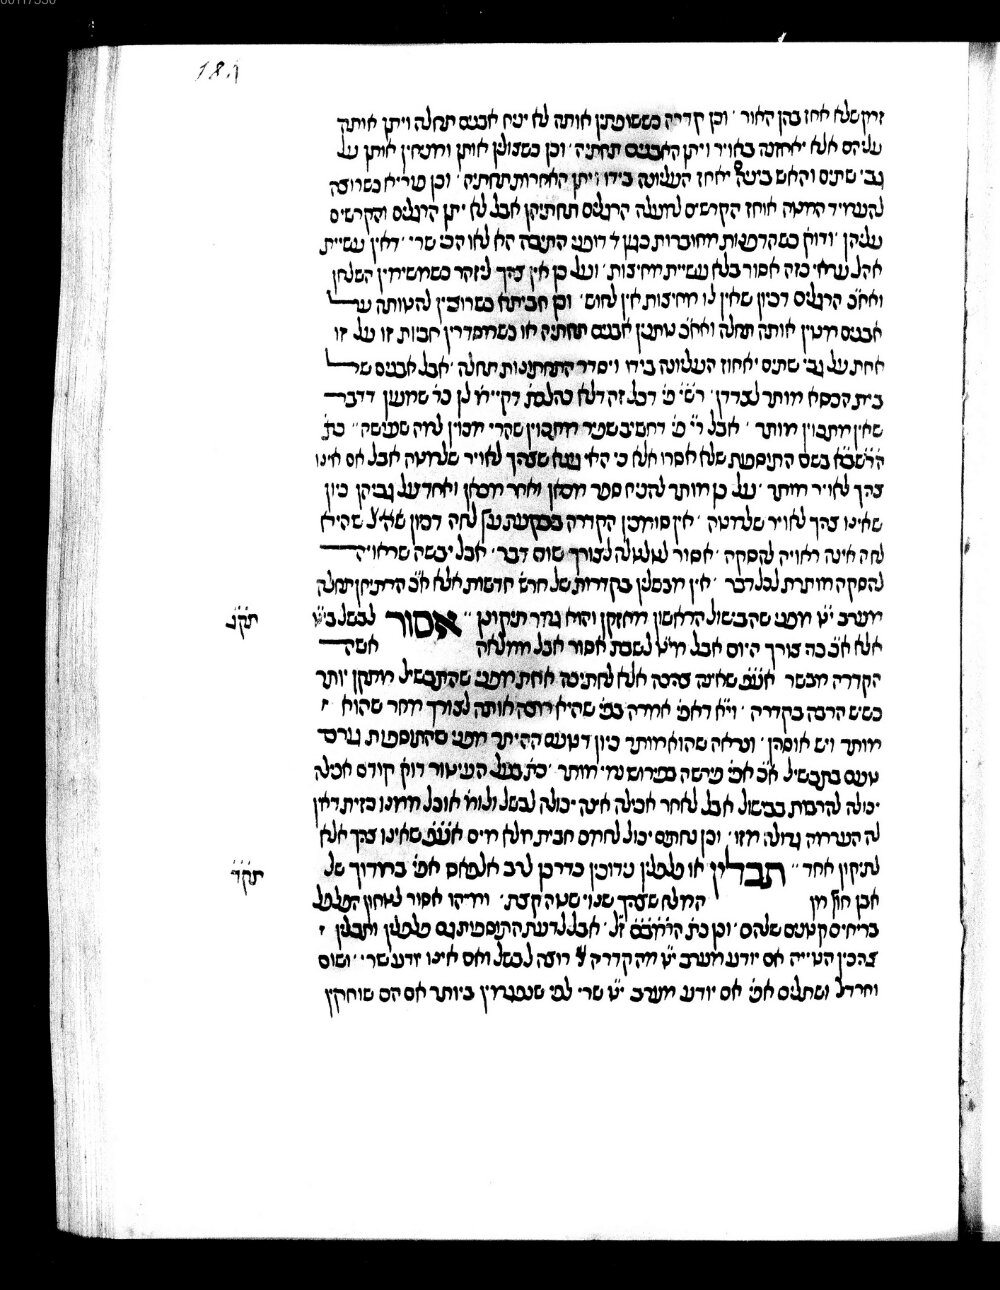 זיין שלא אחז בהן האור ׳ וכן קדרה כששופתין אותה לא יניח אבנים תחלה ויתן אותה
עליהם אלא יאחזנה באויר ויתן האבנים תחתיה ׳ וכן כשצולין אותן
גבי שתים והאש ביניהם יאחז העליונה בידו ויתן האחרות תחתיה ׳ וכן פוריא כשרוצה
להעמיד המטה אוחז הקרשים למעלה הרגלים תחתיהן אבל לא יתן הרגלים והקרשים
עליהן ׳ ודוק׳ כשהדפנות מחוברות כגון ד׳ דופני התיבה הא לאו הכי שרי ׳ דאין עשיית
אהל עראי כזה אסור בלא עשיית מחיצות ׳ ועל כן אין צריך ליזהר כשמשימין השלחן
ואח״כ הרגלים דכיון שאין לו מחיצות אין לחוש ׳ וכן חביתא כשרוצין להשוותה על
אבנים מטין אותה תחלה ואח״כ נותנין אבנים תחתיה או כשמסדרין חביות זו על זו
אחת על גבי שתים יאחוז העליונה בידו ויסדר התחתונות תחלה ׳ אבל אבנים של
בית הכסא מותר לצדדן ׳ רש״י פי׳ דכל זה דלא כהלכת׳ דקיי״מ לן כר׳ שמעון דדבר
שאין מתכוין מותר ׳ אבל ר״י פי׳ דחשיב שפיר מתכוין שהרי מכוין למה שעושה ״ כת׳
הרשב״א בשם התוספות שלא אסרו אלא כי האי גונא שצריך לאויר שלמטה אבל אם אינו
צריך לאויר מותר ׳ על כן מותר להניח ספר מכאן ואחר מכאן ואחד על גביהן כיון
שאינו צריך לאויר שלמטה ׳ אין סומכין הקדרה בבקעת עץ לחה דכיון שהיא
לחה אינה ראויה להסקה ׳ אסור לטלטלה לצורך שום דבר ׳ אבל יבשה שראויה
להסקה מותרת לכל דבר ׳ אין מבשלין בקדרות של חרש חדשות אלא א״כ הרתיחן תחלה
מערב י״ט מפני שהבשול הראשון מחזקן והוא גמר תיקונן ״ אסור לבשל בי״ט
תקג
אלא א״כ בה צורך היום אבל מי״ט לשבת אסור אבל ממלאה אשה
הקדרה מבשר אע״פ שאינה צריכה אלא לחתיכה אחת מפני שהתבשיל מתקן יותר
כשיש הרבה בקדרה ׳ וי״א דאפי׳ אמרה בפי׳ שהיא רוצה אותה לצורך מחר שהוא
מותר ויש אוסרין ׳ ונראה שהוא מותר כיון דטעם ההיתר מפני שהתוספות גורם
טעם בתבשיל א״כ אפי׳ פירשה בפירוש נמי מותר ׳ כת׳ בעל העיטור דוק׳ קודם אכילה
יכולה להרבות בבישול אבל לאחר אכילה אינה יכולה לבשל ולומ׳ אוכל ממנו כזית דאין
לה הערמה גדולה מזו ׳ וכן נחתום יכול לחמם חבית מלא מים אע״פ שאינו צריך אלא
לתיקון אחד ״ תבלין או פלפלין נידוכין כדרכן לרב אלפאס אפי׳ במדוך של
תקד
אבן חוץ מן המלח שצריך שנוי שטה קצת ׳ ומיהו אסור לטחון הפלפל
בריחים קטנים שלהם ׳ וכן כת׳ הרמב״ם ז״ל ׳ אבל לדעת התוספות גם פלפלין ותבלין
צריכין הטייה אם יודע מערב י״ט מה קדרה רוצה לבשל ואם אינו יודע שרי ׳ ושום
וחרדל ושחלים אפי׳ אם יודע מערב י״ט שרי לפי שנפגמין ביותר אם הם שוחקין